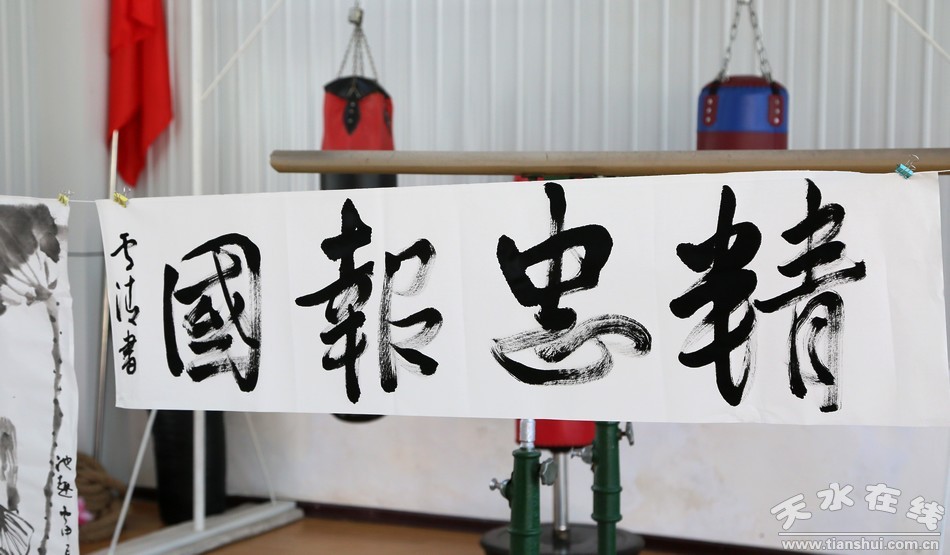 精忠報國
雪清書
天水在线
www.tianshui.com.cn